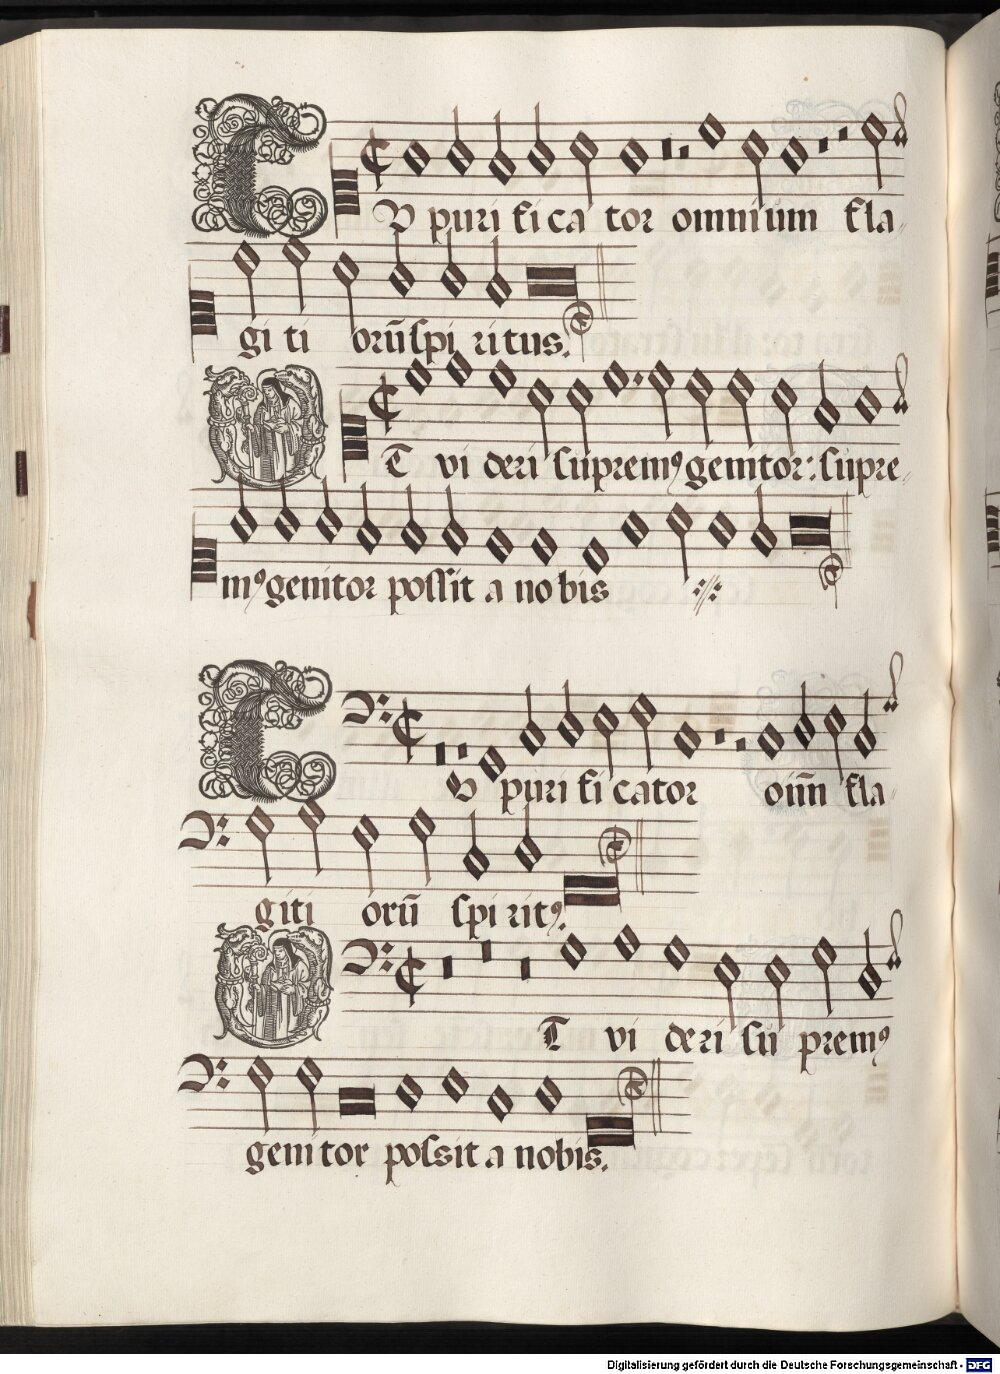 Tu puri fi ca tor omnium fla
gi ti orū spi ri tus.
Ut vi deri supremꝰ genitor: supre
mꝰ genitor possit a nobis
Tu puri fi cator oīm fla
giti orū spi ritꝰ.
Ut vi deri su premꝰ
geni tor possit a nobis.
Digitalisierung gefördert durch die Deutsche Forschungsgemeinschaft - DFG